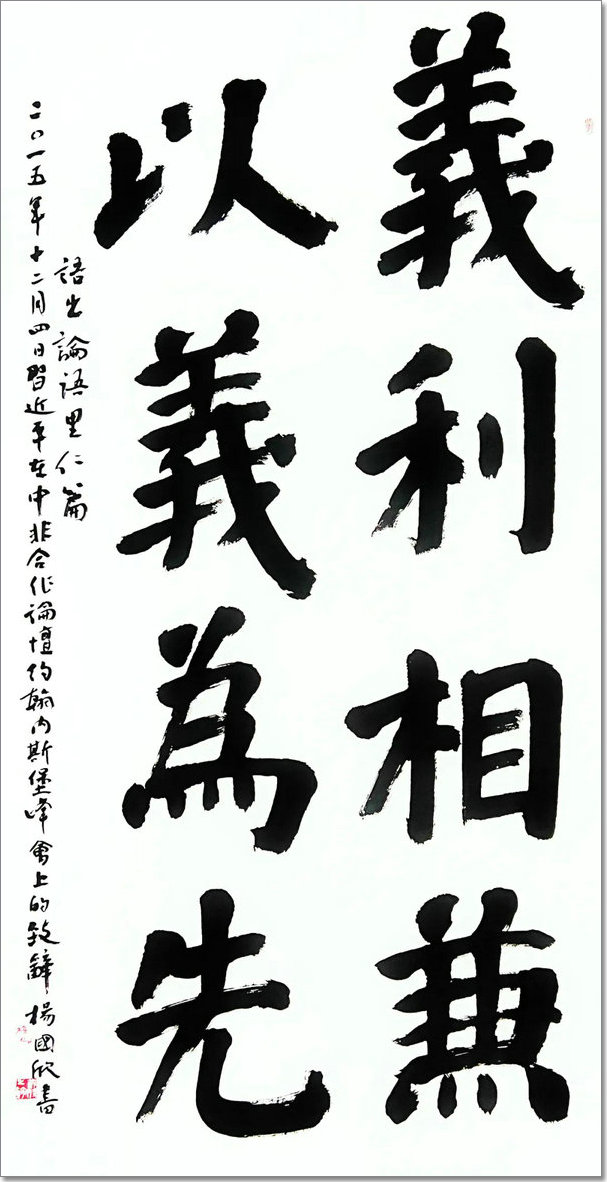 義利相兼
以義為先
語出論語里仁篇
二〇一五年十二月四日習近平在中非合作論壇約翰內斯堡峰會上的致辭 楊國欣書